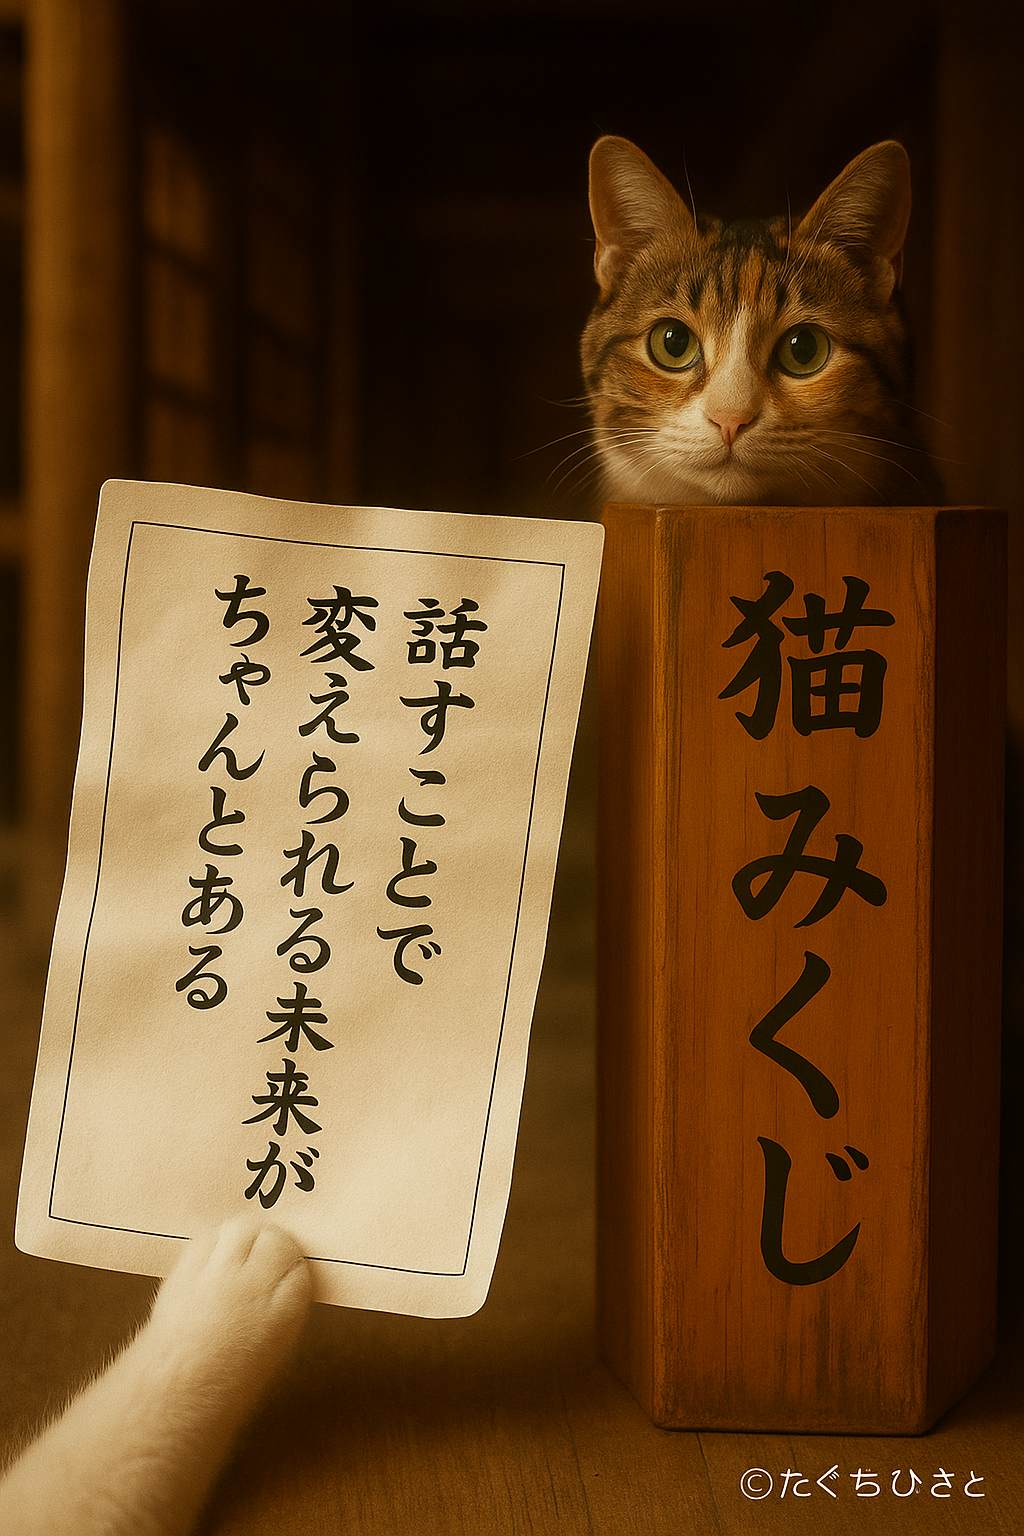 話すことで
変えられる未来が
ちゃんとある
猫みくじ
©たぐちひさと